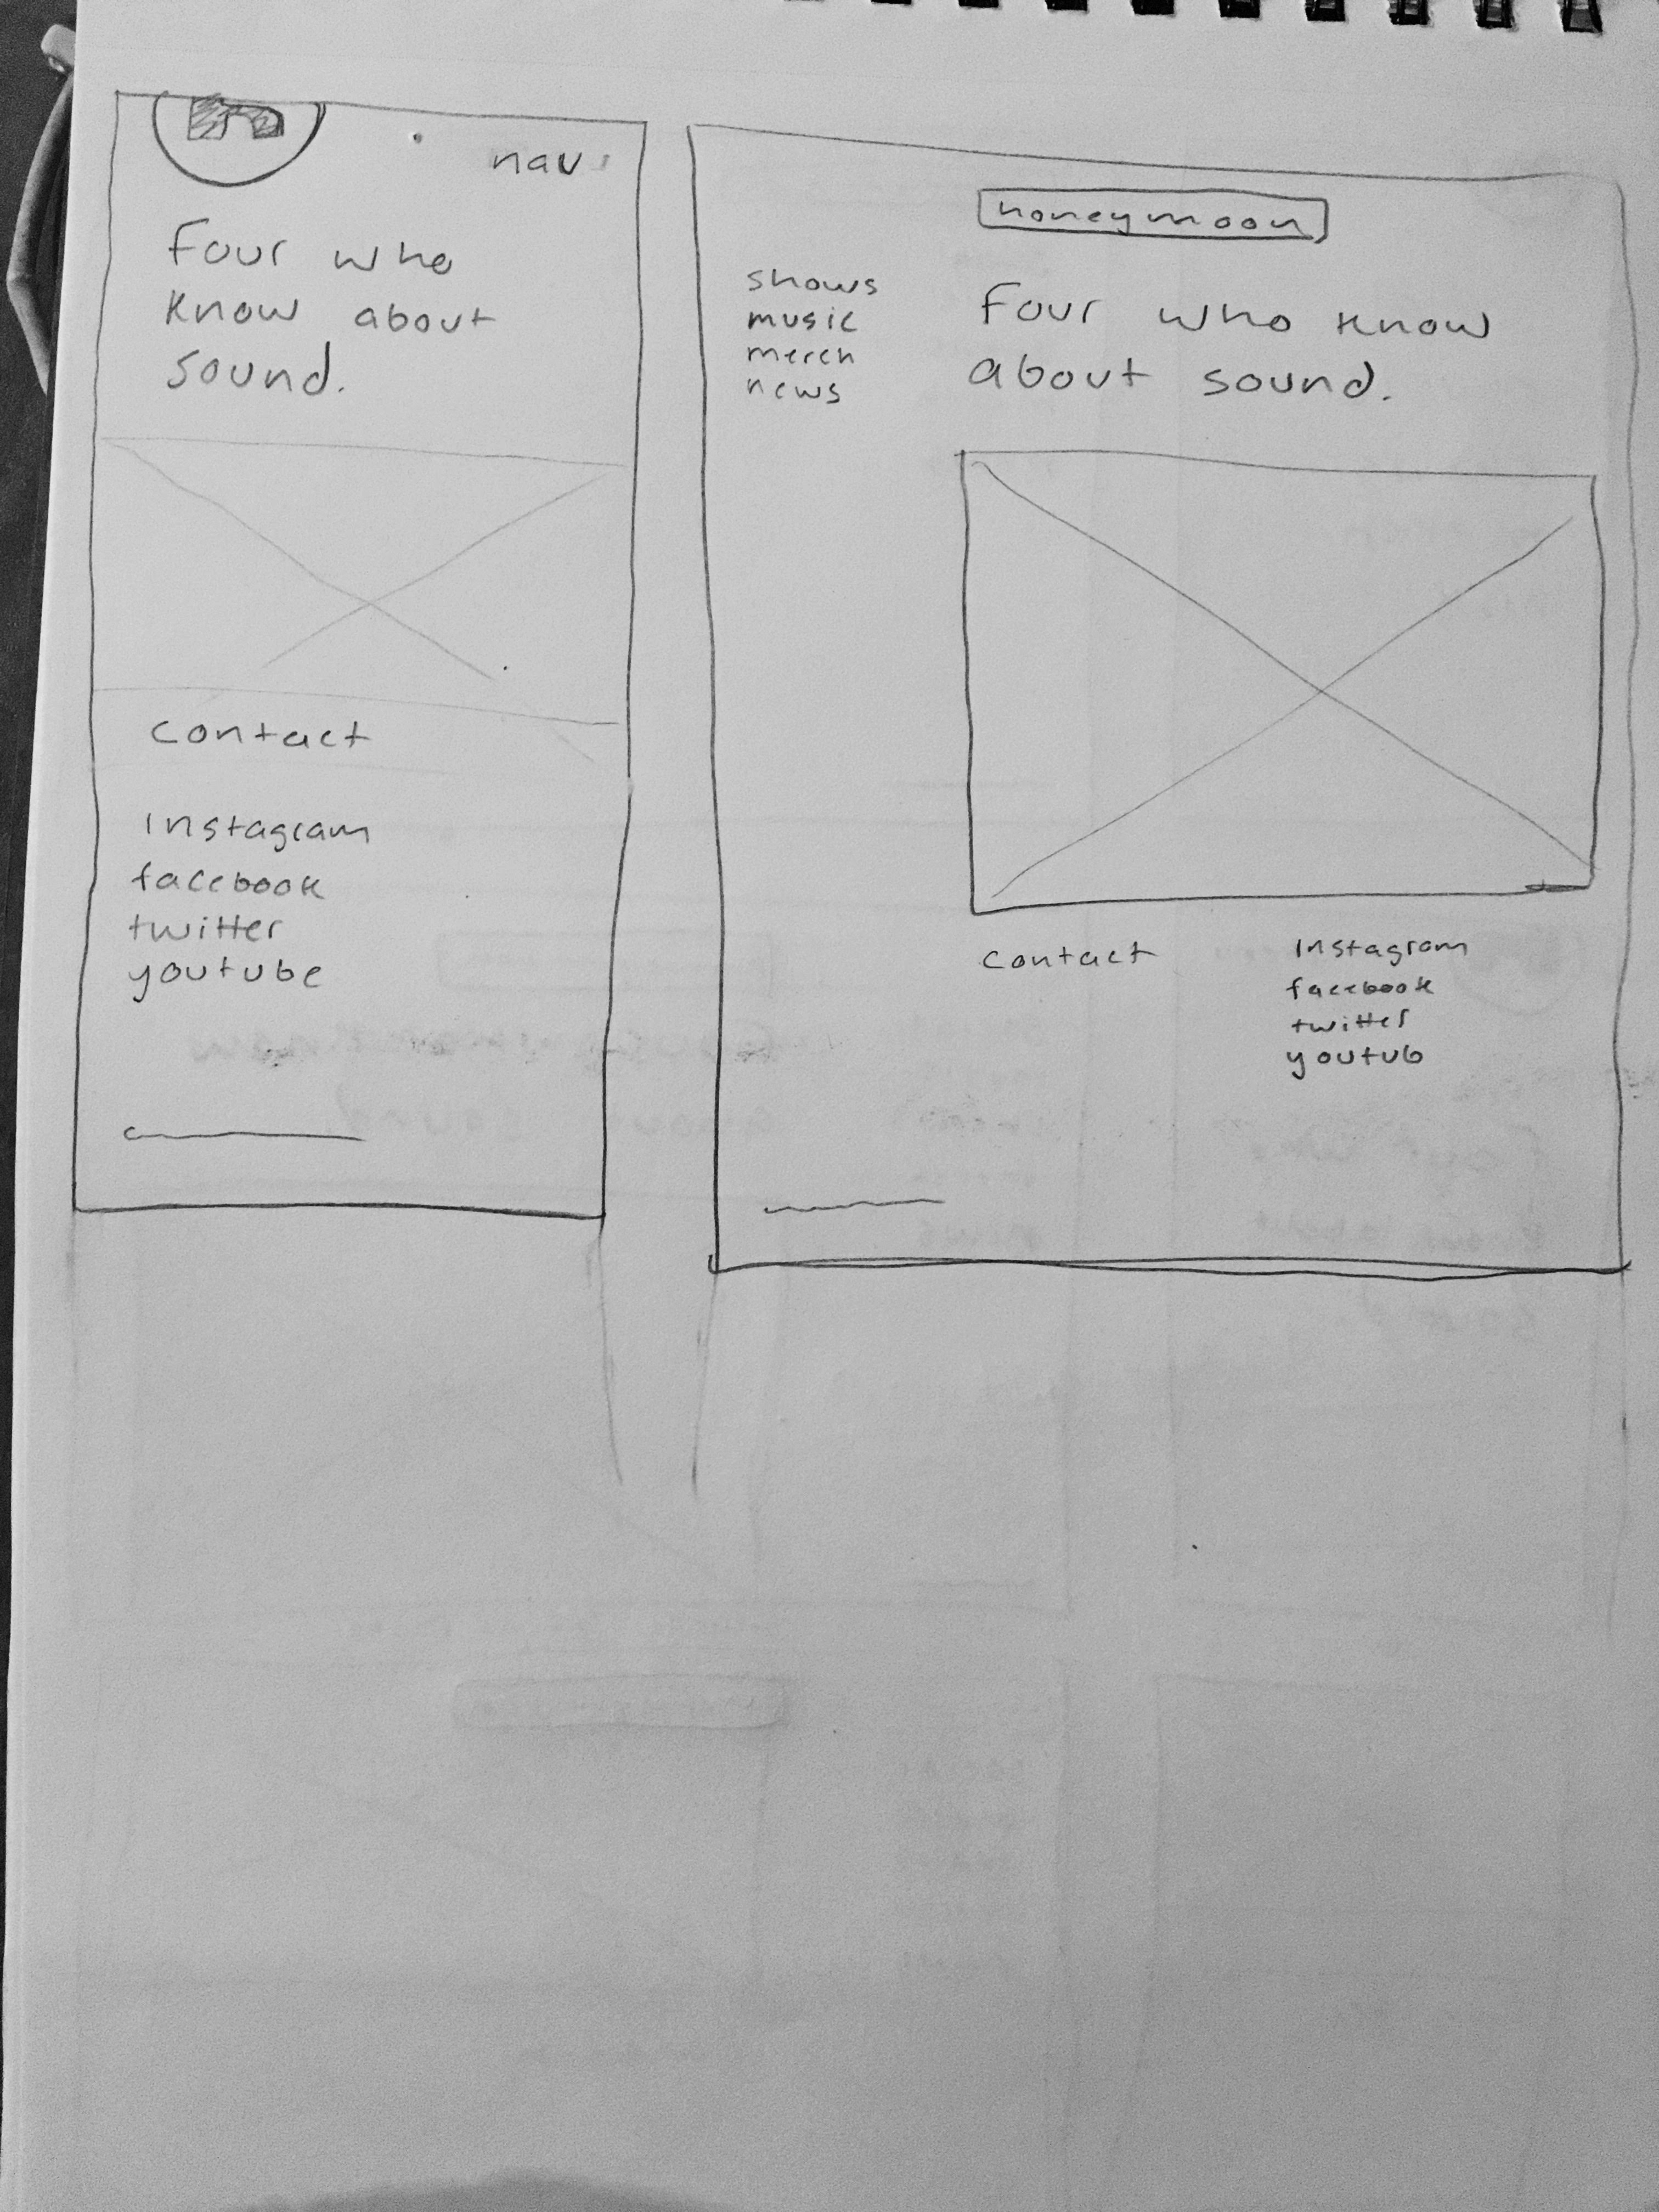 nav
Four who
know about
sound.
contact
Instagram
facebook
twitter
youtube
honeymoon
shows
music
merch
news
Four who know
about sound.
contact
Instagram
facebook
twitter
youtub